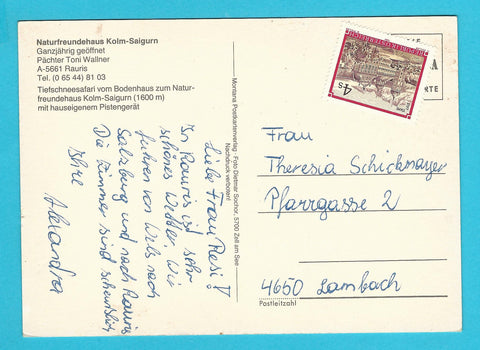 Naturfreundehaus Kolm-Saigurn
Ganzjährig geöffnet
Pächter Toni Wallner
A-5661 Rauris
Tel. (0 65 44) 81 03
Tiefschneesafari vom Bodenhaus zum Natur-
freundehaus Kolm-Saigurn (1600 m)
mit hauseigenem Pistengerät
Liebe Frau Resi!
In Rauris ist sehr
schönes Wetter. Wir
fuhren von Wels nach
Salzburg und nach Rauris
Die Zimmer sind
Ihre Alexandra
Montana Postkartenverlag · Foto Dietmar Sochor, 5700 Zell am See
Nachdruck verboten!
4 S
REPUBLIK ÖSTERREICH
Frau
Theresia Schickmayer
Pfarrgasse 2
4650 Lambach
Postleitzahl